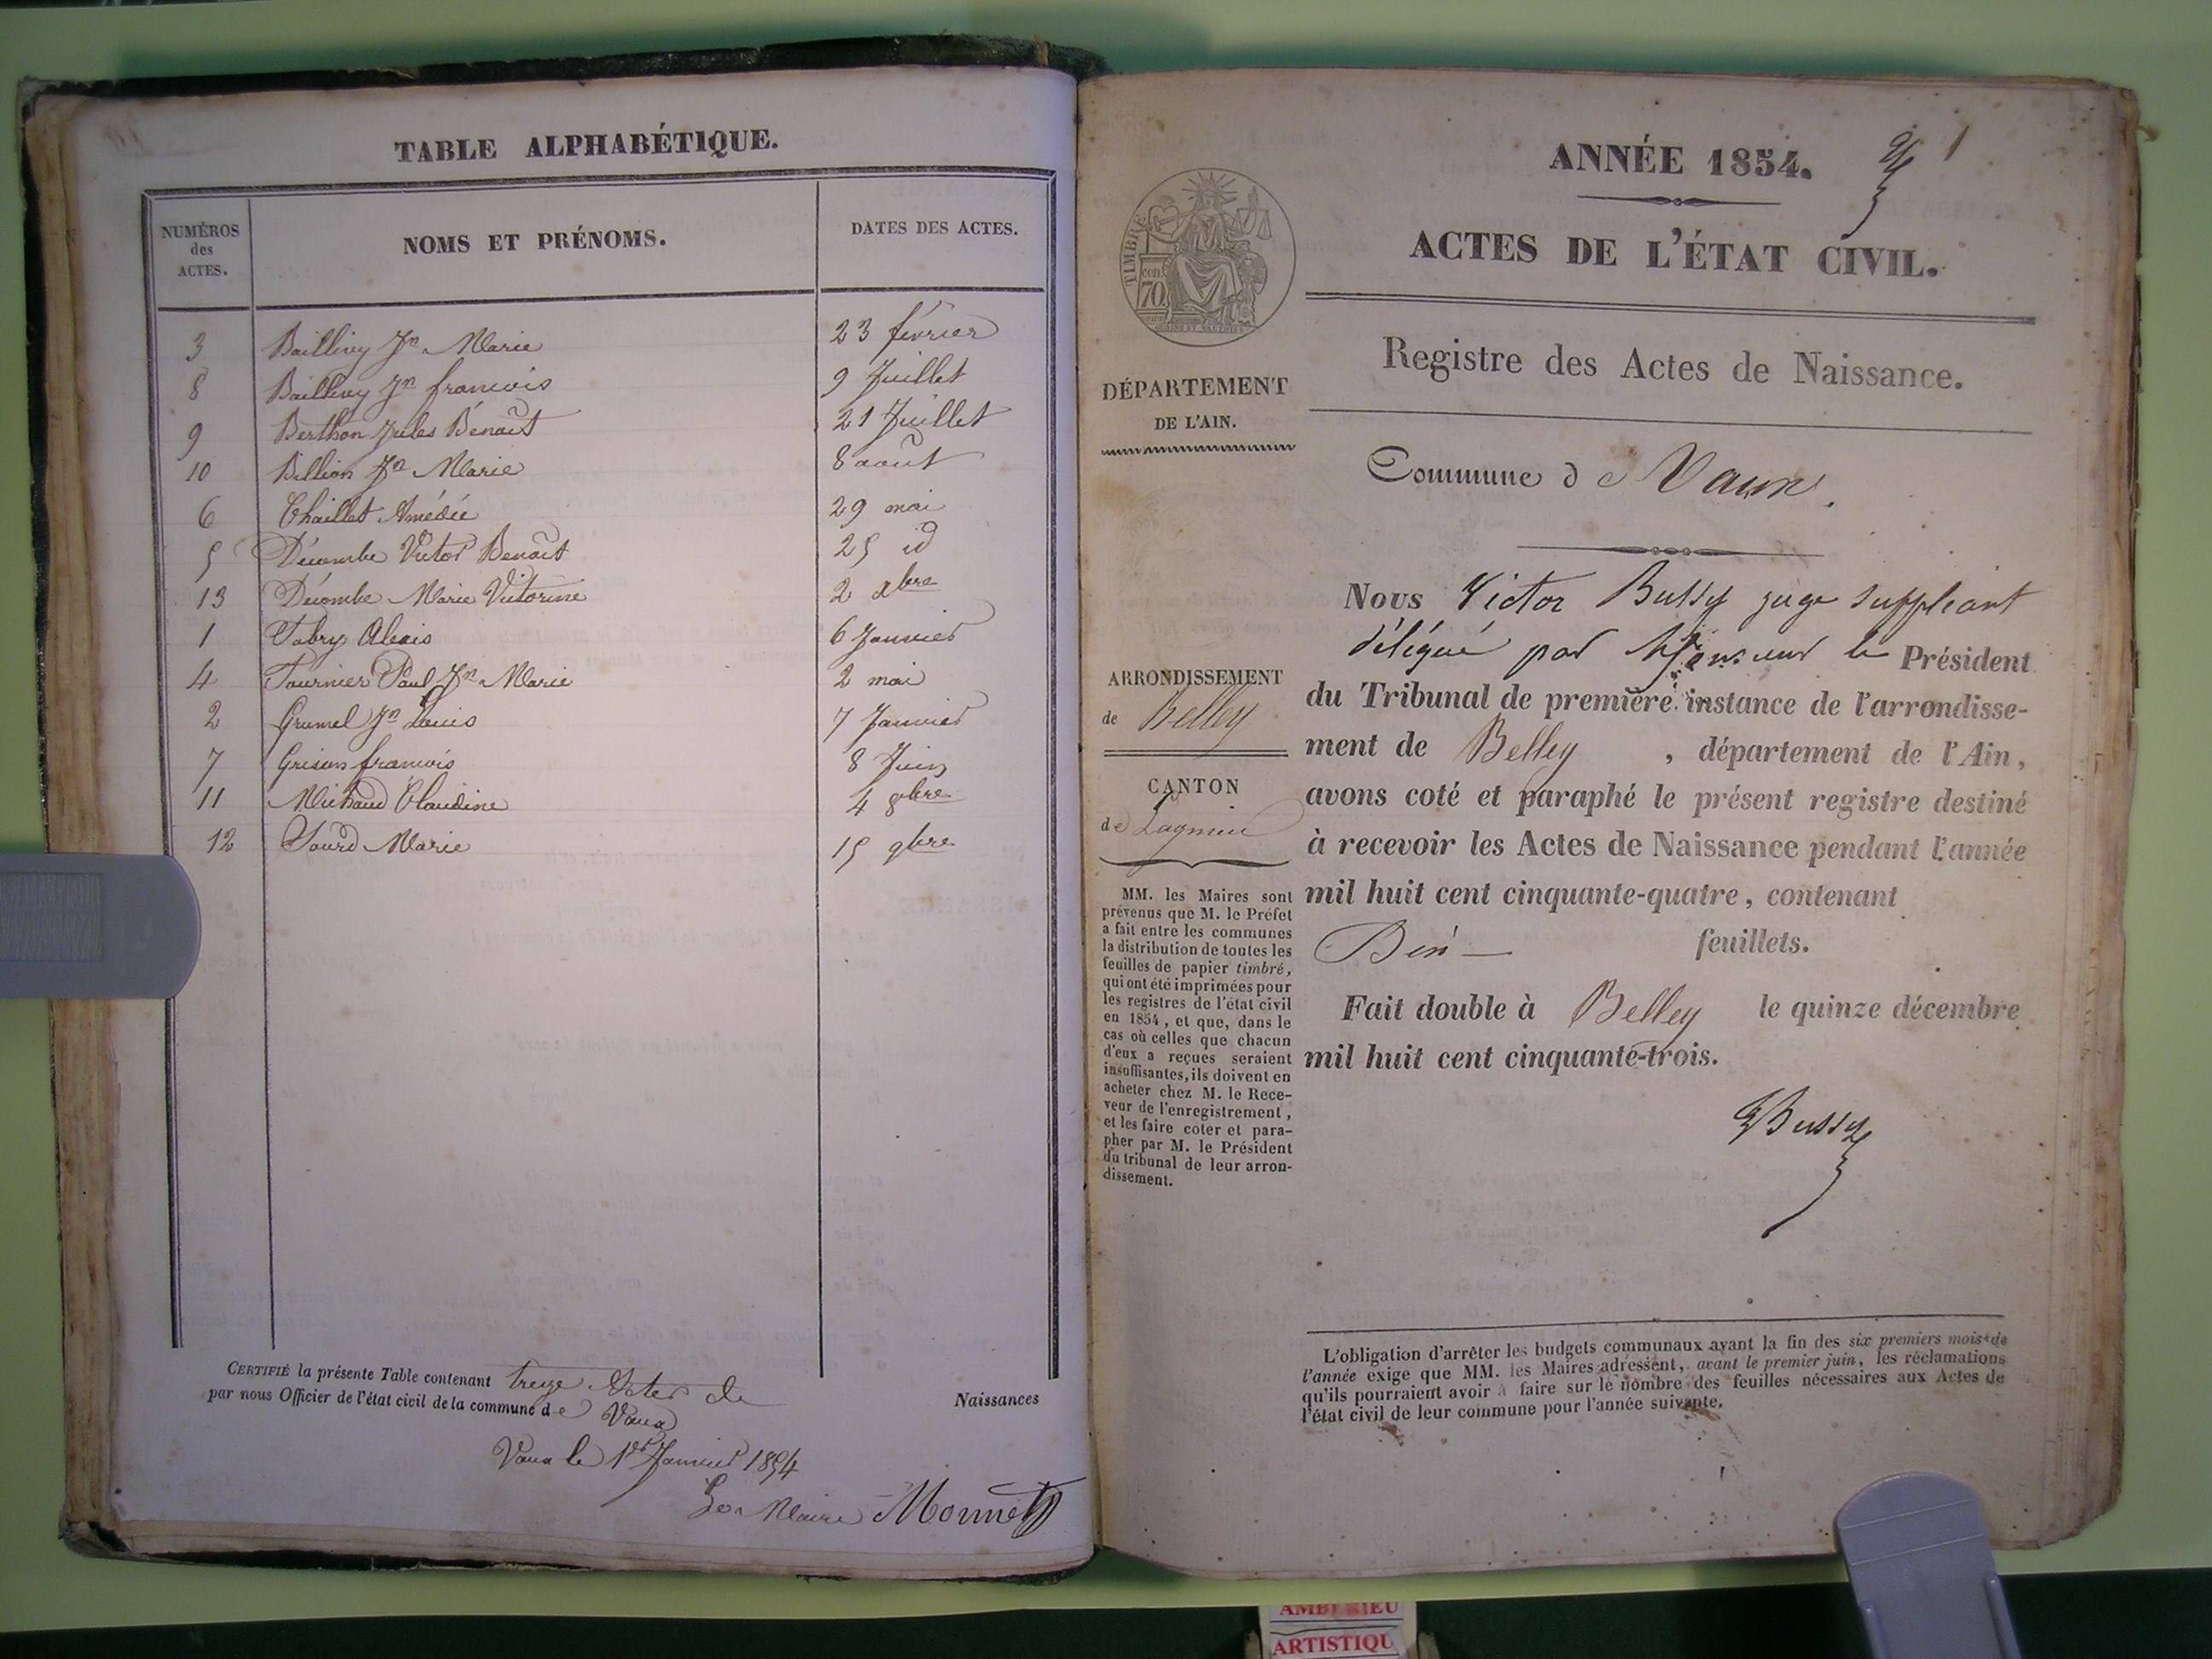 TABLE ALPHABÉTIQUE.
NUMÉROS
des
ACTES.
NOMS ET PRÉNOMS.
DATES DES ACTES.
3 Baillivy Jn Marie 23 février
8 Baillivy Jn francois 9 Juillet
9 Berthon Jules Benoît 21 Juillet
10 Billion Jn Marie 8 août
6 Chaillet Amédée 29 mai
5 Décombe Victor Benoît 25 id
13 Décombe Marie Victorine 2 xbre
1 Fabry Alexis 6 Janvier
4 Fournier Paul Jn Marie 2 mai
2 Grumel Jn Louis 7 Janvier
7 Grison francois 8 Juin
11 Michaud Claudine 4 8bre
12 Sourd Marie 15 9bre
CERTIFIÉ la présente Table contenant treize Actes de Naissances
par nous Officier de l'état civil de la commune de Vaux
Vaux le 1er Janvier 1854
Le Maire Monnet
ANNÉE 1854.
1
ACTES DE L'ÉTAT CIVIL.
TIMBRE
cen
70.
Registre des Actes de Naissance.
DÉPARTEMENT
DE L'AIN.
Commune de Vaux.
ARRONDISSEMENT
de Belley
CANTON
de Lagnieu
MM. les Maires sont
prévenus que M. le Préfet
a fait entre les communes
la distribution de toutes les
feuilles de papier timbré,
qui ont été imprimées pour
les registres de l'état civil
en 1854, et que, dans le
cas où celles que chacun
d'eux a reçues seraient
insuffisantes, ils doivent en
acheter chez M. le Rece-
veur de l'enregistrement,
et les faire coter et para-
pher par M. le Président
du tribunal de leur arron-
dissement.
Nous Victor Bussy juge suppléant
délégué par Monsieur le Président
du Tribunal de première instance de l'arrondisse-
ment de Belley, département de l'Ain,
avons coté et paraphé le présent registre destiné
à recevoir les Actes de Naissance pendant l'année
mil huit cent cinquante-quatre, contenant
feuillets.
Fait double à Belley le quinze décembre
mil huit cent cinquante-trois.
Bussy
L'obligation d'arrêter les budgets communaux avant la fin des six premiers mois de
l'année exige que MM. les Maires adressent, avant le premier juin, les réclamations
qu'ils pourraient avoir à faire sur le nombre des feuilles nécessaires aux Actes de
l'état civil de leur commune pour l'année suivante.
AMBERIEU
ARTISTIQU